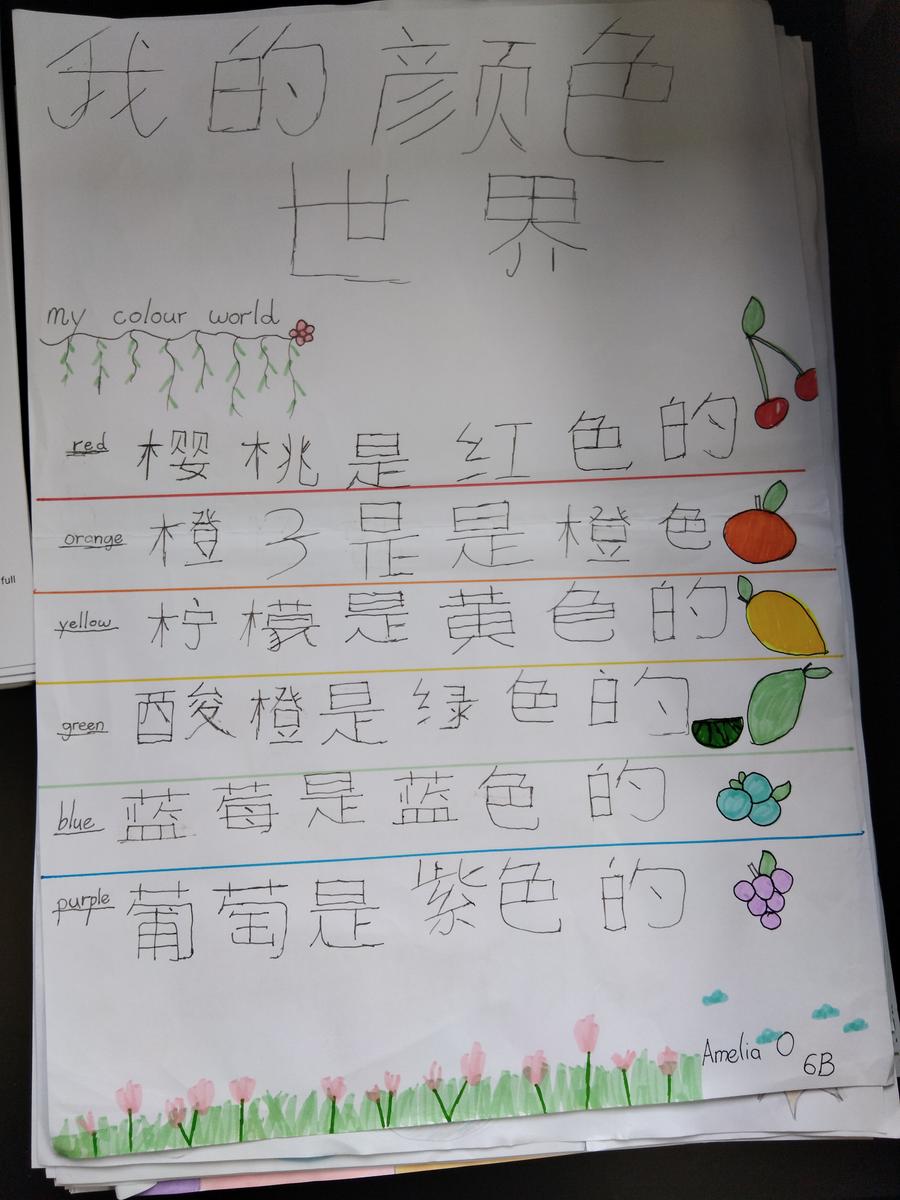 我的颜色
世界
my colour world
red 樱桃是红色的
orange 橙子是是橙色
yellow 柠檬是黄色的
green 酸橙是绿色的
blue 蓝莓是蓝色的
purple 葡萄是紫色的
Amelia O
6B
full